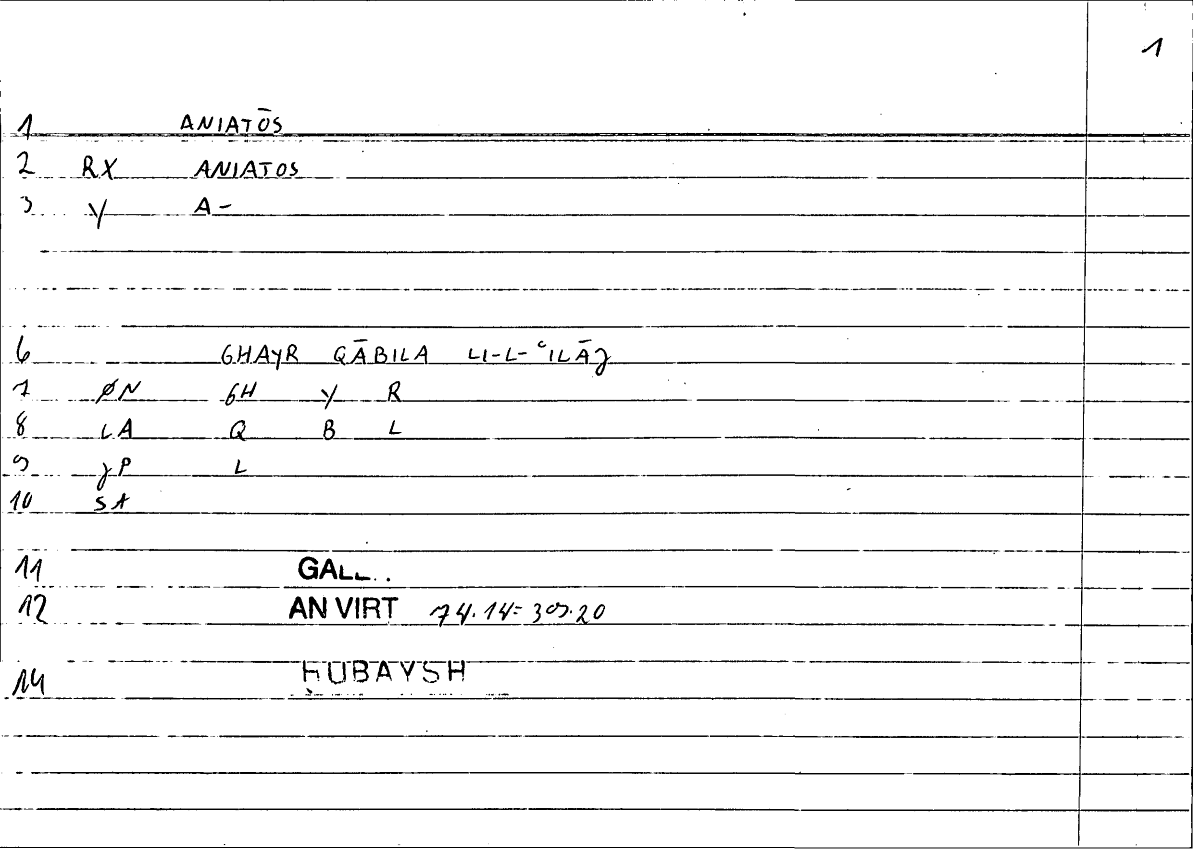 1
1 ANIATŌS
2 RX ANIATOS
3 Y A-
6 GHAYR QĀBILA LI-L-ʿILĀJ
7 ØN GH Y R
8 LA Q B L
9 JP L
10 SA
11 GAL
12 AN VIRT 74.14=309.20
14 ḤUBAYSH